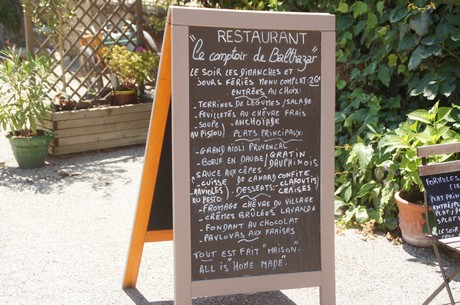 RESTAURANT
"le comptoir de Balthazar"
LE SOIR LES DIMANCHES ET
JOURS FÉRIÉS MENU COMPLET 26€
ENTRÉES AU CHOIX
- TERRINES DE LEGUMES/SALADE
- FEUILLETÉ AU CHÈVRE FRAIS
- SOUPE - ANCHOÏADE
AU PISTOU PLATS PRINCIPAUX
- GRAND AÏOLI PROVENÇAL
- BOEUF EN DAUBE / GRATIN DAUPHINOIS
SAUCE AUX CÈPES
- CUISSE DE CANARD CONFITE
- RAVIOLES DESSERTS - CLAFOUTIS
DU PESTO CERISES
- FROMAGE CHÈVRE DU VILLAGE
- CRÈMES BRÛLÉES LAVANDE
- FONDANT AU CHOCOLAT
- PAVLOVAS AUX FRAISES
TOUT EST FAIT "MAISON"
ALL IS "HOME MADE"
FORMULE
ENTRÉE
PLAT